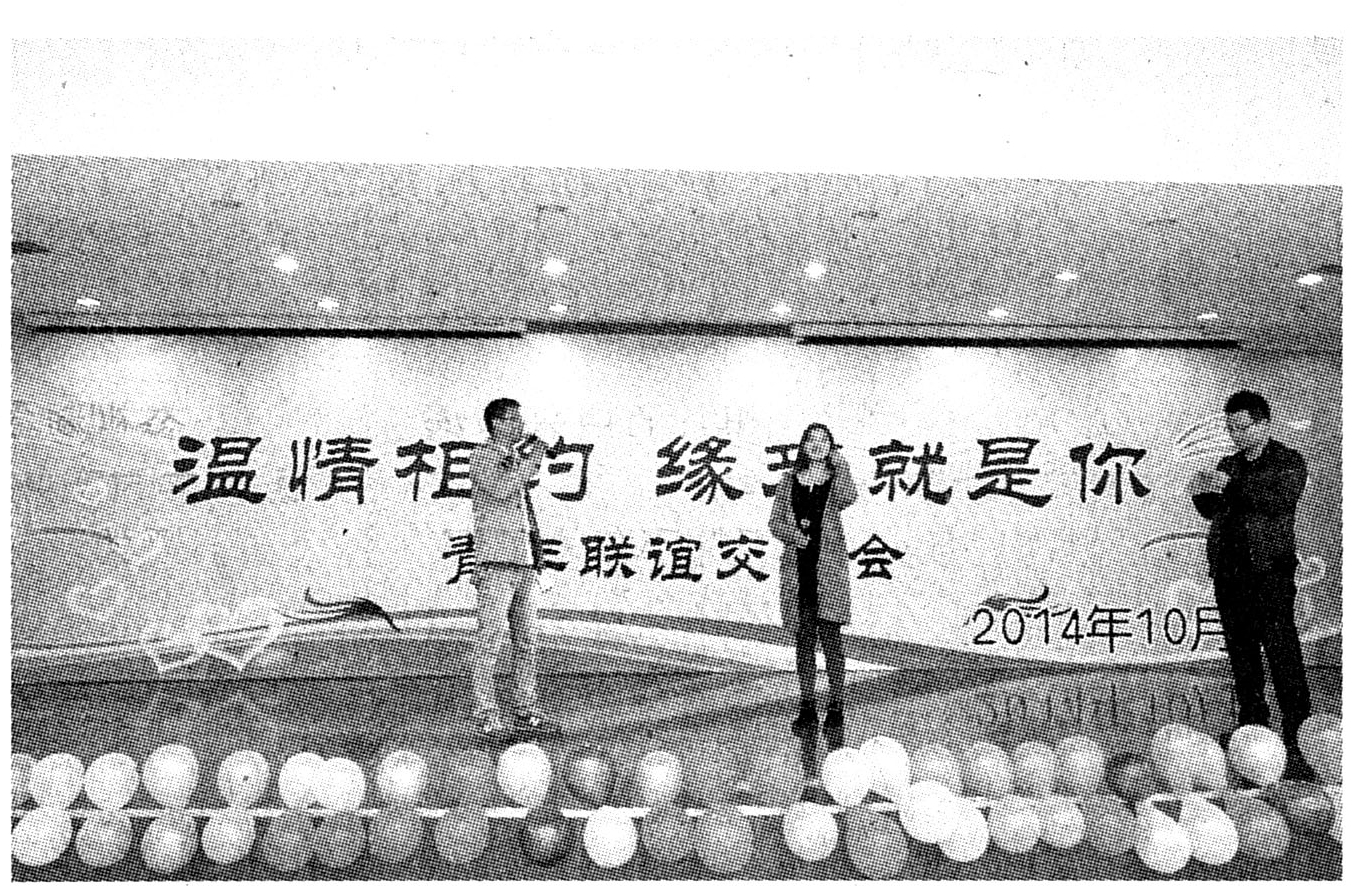 温情相约 缘来就是你
青年联谊交 会
2014年10月